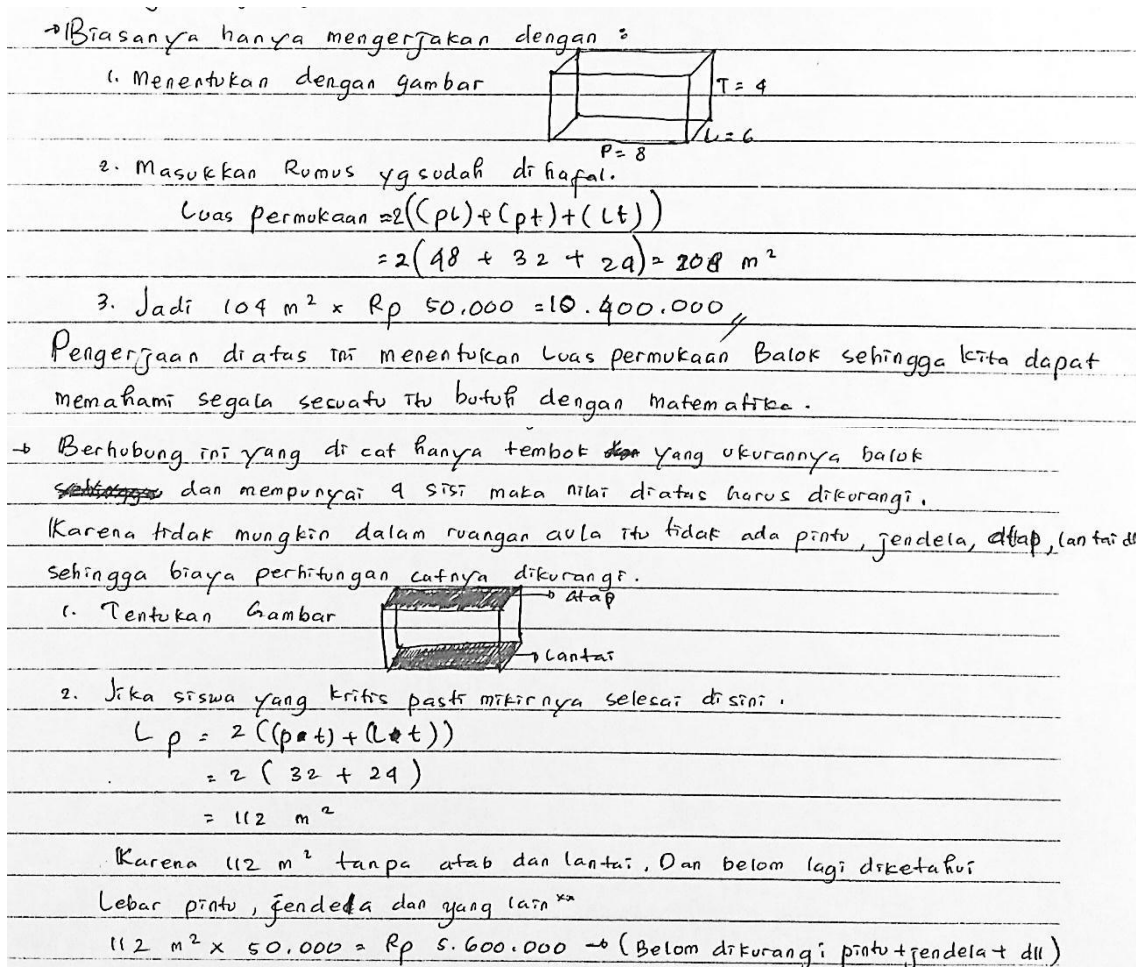 → Biasanya hanya mengerjakan dengan :
1. Menentukan dengan gambar
T = 4
L = 6
P = 8
2. Masukkan Rumus yg sudah di hafal.
Luas permukaan = 2((pl) + (pt) + (lt))
= 2(48 + 32 + 24) = 208 m²
3. Jadi 104 m² x Rp 50.000 = 10.400.000 //
Pengerjaan diatas ini menentukan Luas permukaan Balok sehingga kita dapat
memahami segala sesuatu itu butuh dengan matematika.
→ Berhubung ini yang di cat hanya tembok yang ukurannya balok
dan mempunyai 4 sisi maka nilai diatas harus dikurangi.
Karena tidak mungkin dalam ruangan aula itu tidak ada pintu, jendela, atap, lantai dll
sehingga biaya perhitungan catnya dikurangi.
1. Tentukan Gambar
→ atap
→ Lantai
2. Jika siswa yang kritis pasti mikirnya selesai disini.
L p = 2 ((p•t) + (L•t))
= 2 ( 32 + 24 )
= 112 m²
Karena 112 m² tanpa atab dan lantai. Dan belom lagi diketahui
Lebar pintu, jendela dan yang lain
112 m² x 50.000 = Rp 5.600.000 → (Belom dikurangi pintu + jendela + dll)